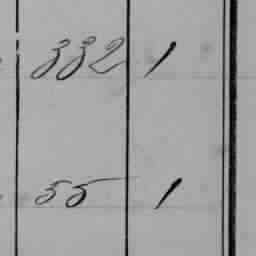 332 1
55 1